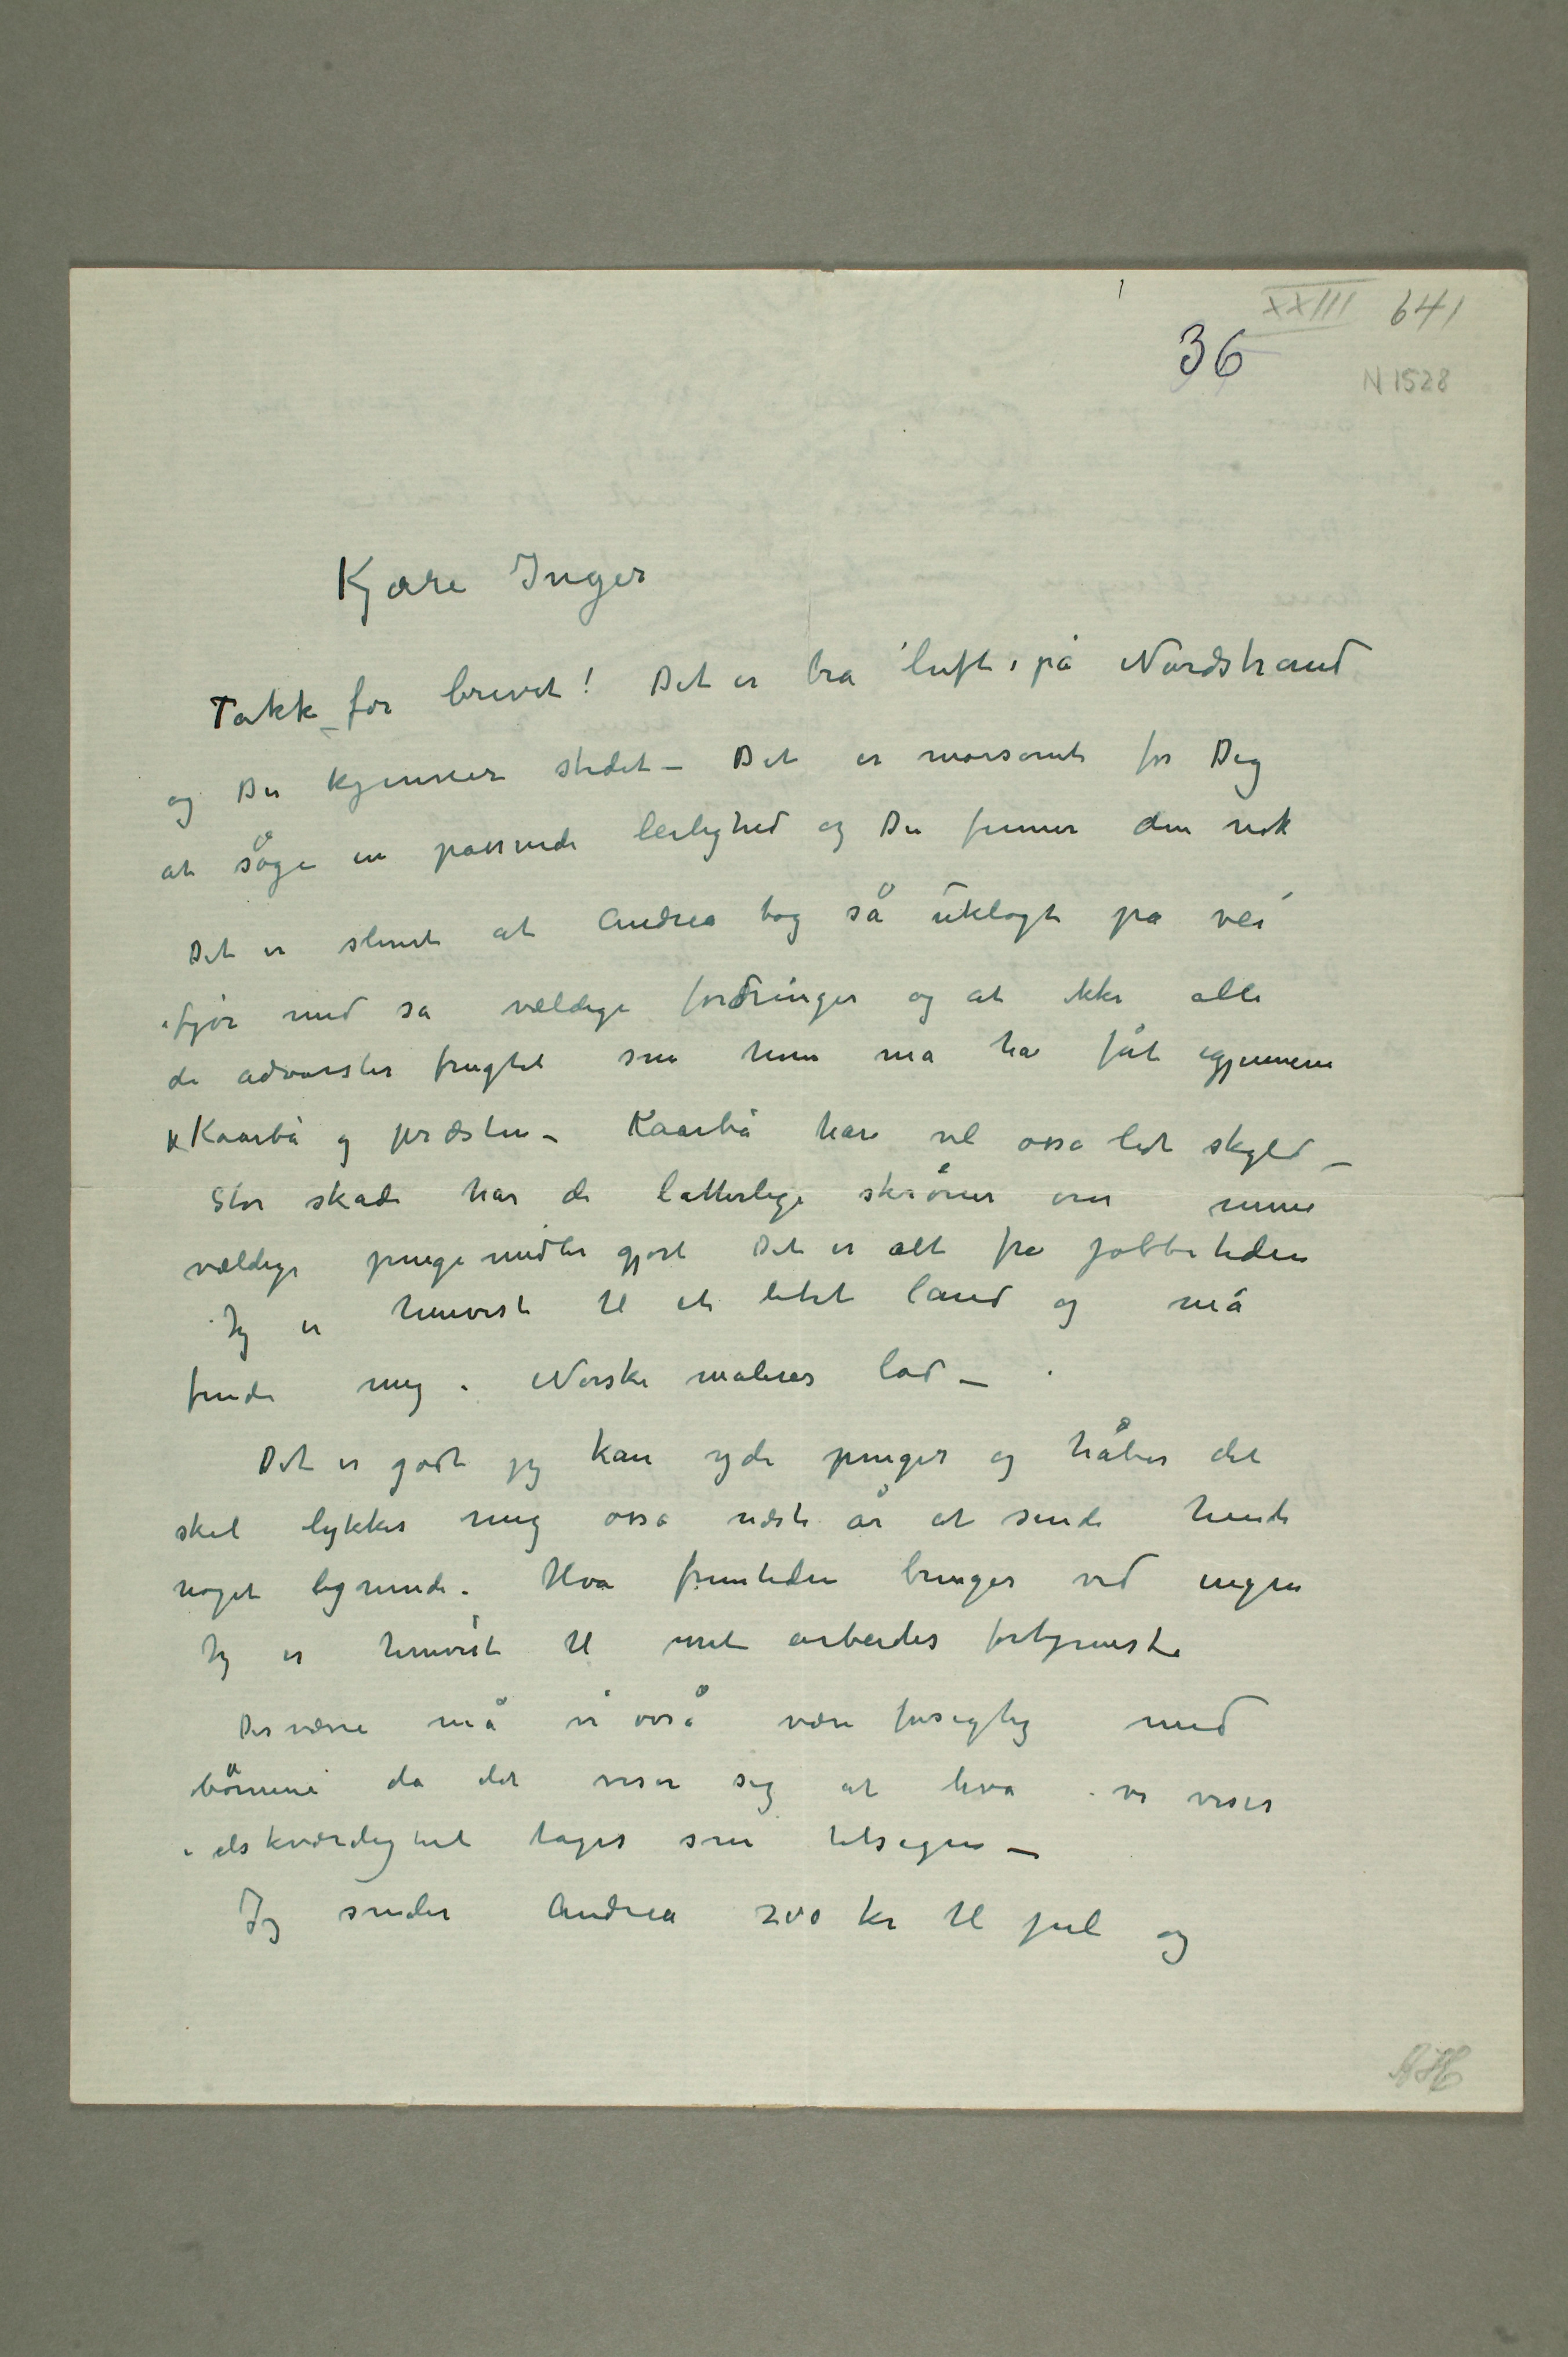 XXIII 641
36
N 1528
Kjære Inger
Takk for brevet! Det er bra luft på Nordstrand
og Du kjenner stedet – Det er morsomt for Dig
at søge en passende leilighed og Du finner den nok
Det er slemt at Andrea tog så uklogt på vei
ifjor med så vældige fordringer og at ikke alle
de advarsler frugtet som hun må ha fåt igjennem
Kaarbø og præsten – Kaarbø har vel osså lidt skyld –
Stor skade har de latterlige skrøner om mine
vældige pengemidler gjort Det er alt fra jobbetiden
Jeg er henvist til et litet land og må
finde mig i Norske maleres lod –
Det er godt jeg kan yde penger og håber det
skal lykkes mig osså næste år at sende hende
noget lignende. Hva fremtiden bringer ved ingen
Jeg er henvist til mit arbeides fortjeneste
Desværre må vi osså være forsigtig med
børnene da det viser sig at hva vi viser
i elskværdighet tages som tilsagn –
Jeg sender Andrea 200 kr til jul og